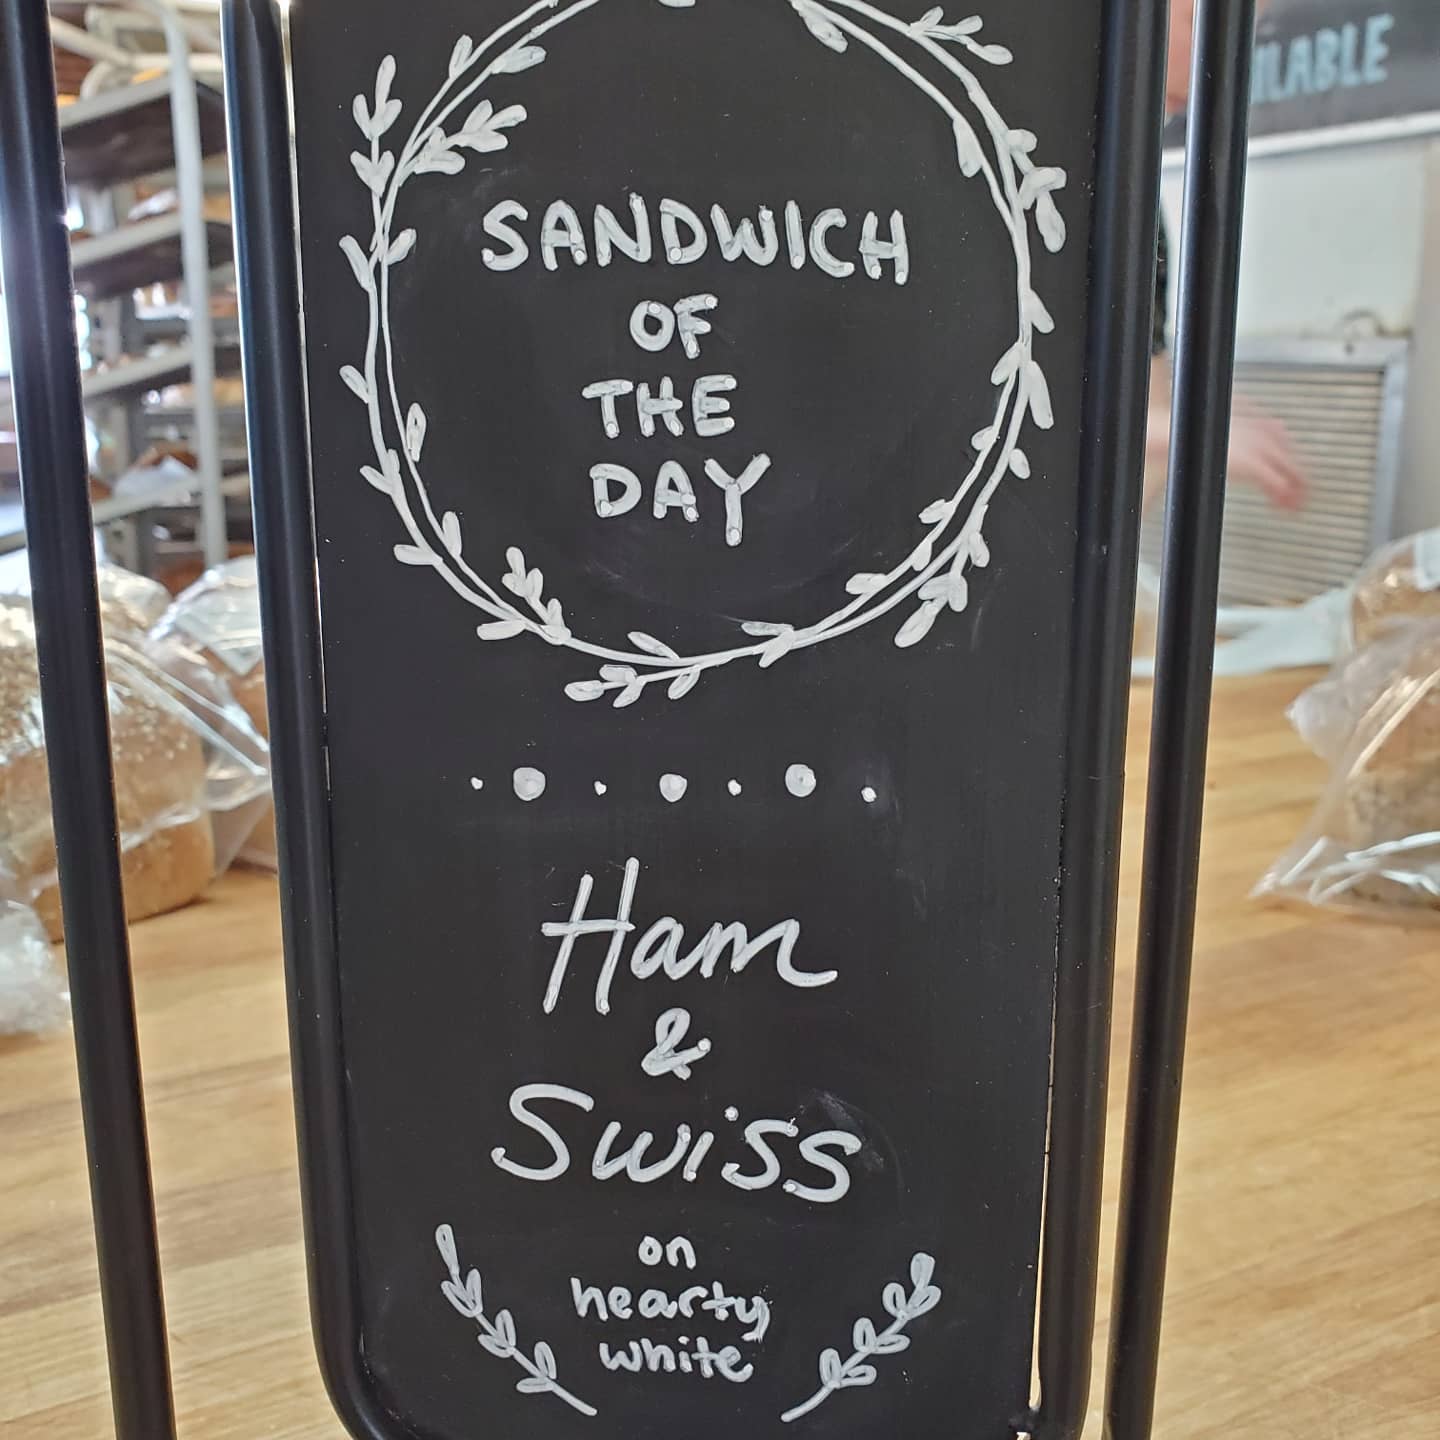 SANDWICH
OF
THE
DAY
Ham
&
Swiss
on
hearty
white